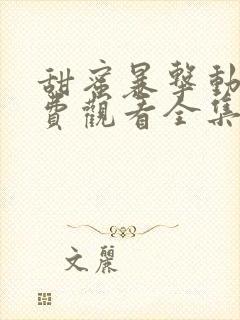 甜蜜暴擊動
費觀看全集
文麗